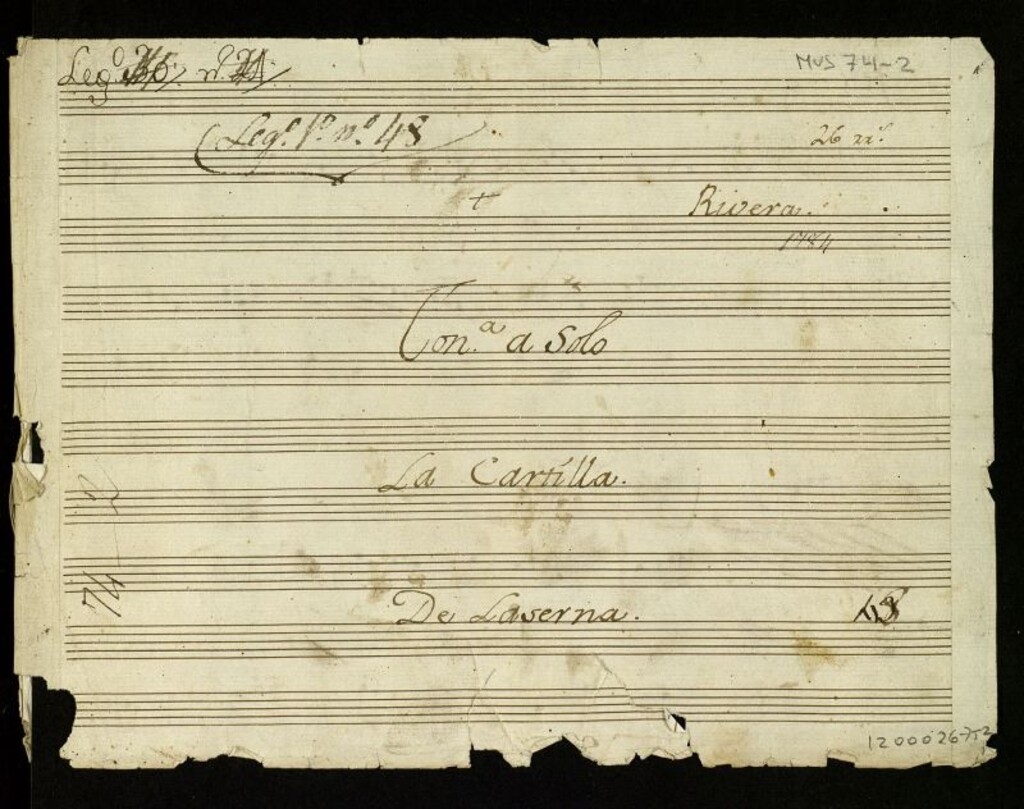 Leg.º nº
MUS 74-2
Legº. 1º. nº. 48
26 rrˢ.
+
Rivera.
1784
Ton.ª a Solo
La Cartilla.
De Laserna.
48
74